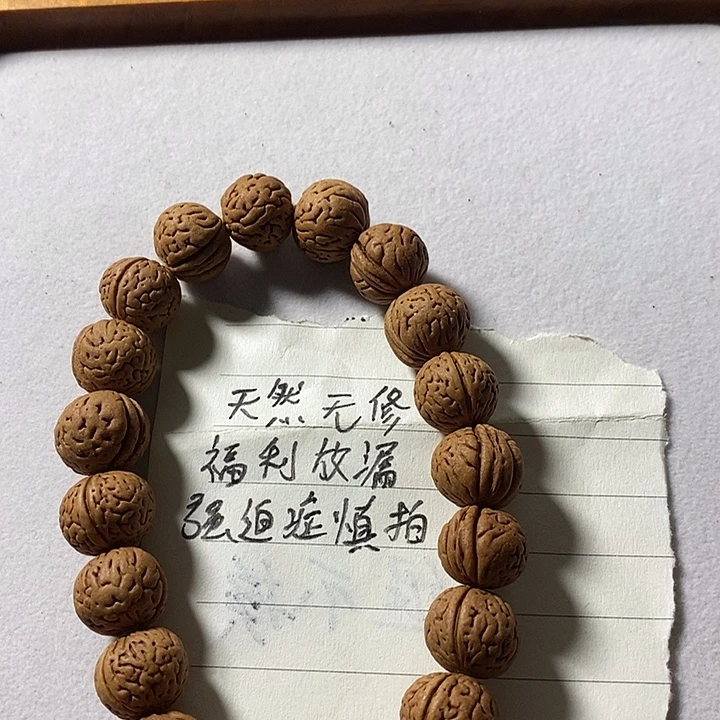 天然无修
福利放漏
强迫症慎拍